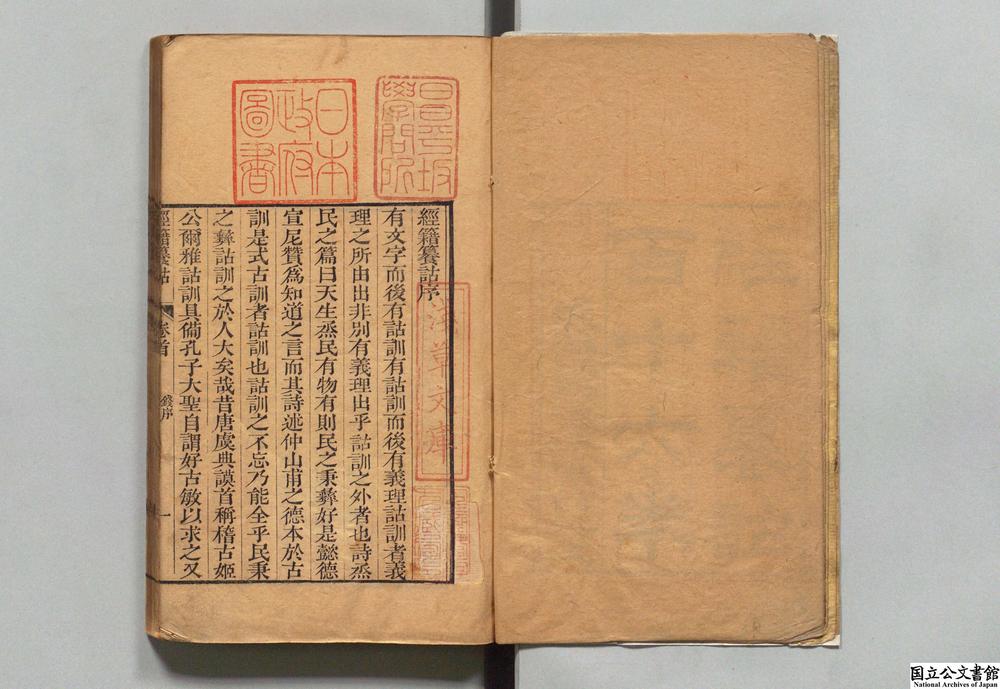 經籍籑詁序
有文字而後有詁訓有詁訓而後有義理詁訓者義
理之所由出非別有義理出乎詁訓之外者也詩烝
民之篇曰天生烝民有物有則民之秉彝好是懿德
宣尼贊爲知道之言而其詩述仲山甫之德本於古
訓是式古訓者詁訓也詁訓之不忘乃能全乎民秉
之彝詁訓之於人大矣哉昔唐虞典謨首稱稽古姬
公爾雅詁訓具備孔子大聖自謂好古敏以求之又
經籍籑詁
卷首
錢序
一
昌平坂
學問所
日本
政府
圖書
淺草文庫
国立公文書館
National Archives of Japan